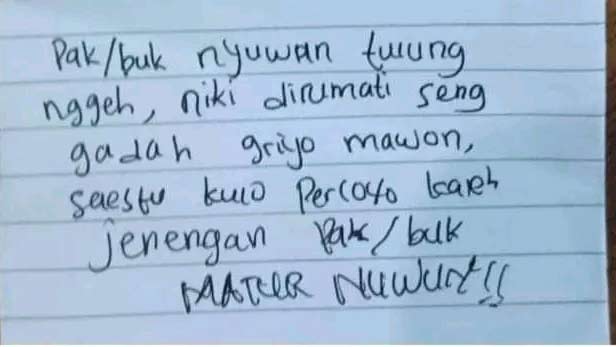 Pak/buk nyuwun tulung
nggeh, niki dirumati seng
gadah griyo mawon,
saestu kulo percoyo kareh
jenengan Pak/buk
MATUR NUWUN!!